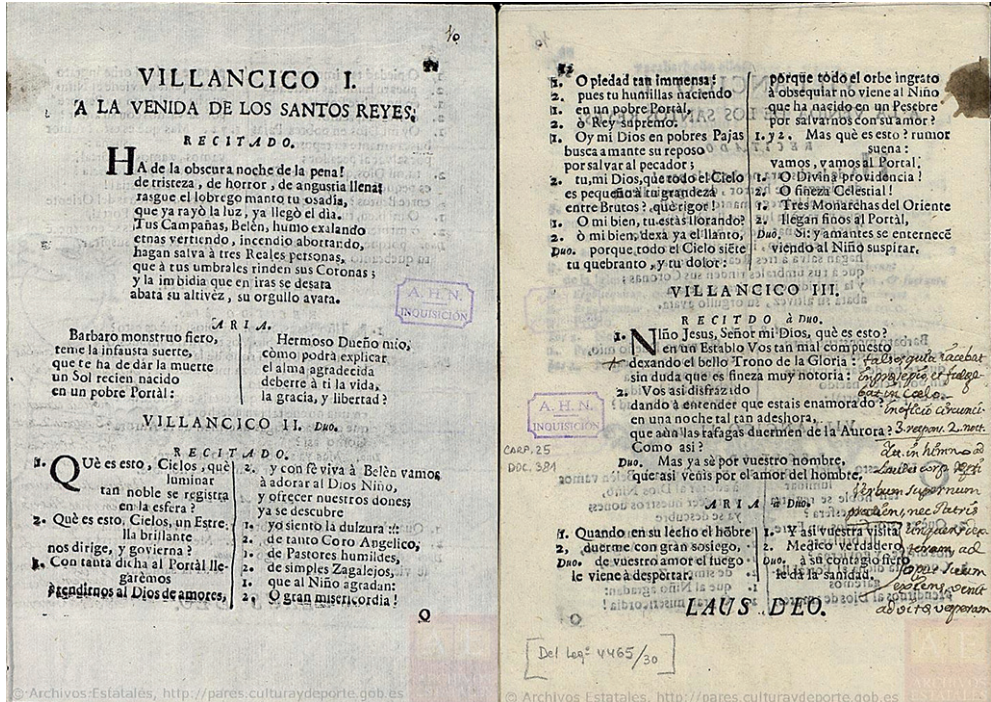 40
VILLANCICO I.
A LA VENIDA DE LOS SANTOS REYES.
RECITADO.
HA de la obscura noche de la pena!
de tristeza, de horror, de angustia llena;
rasgue el lobrego manto tu osadia,
que ya rayò la luz, ya llegò el dia.
Tus Campañas, Belèn, humo exalando
etnas vertiendo, incendio abortando,
hagan salva à tres Reales personas,
que à tus umbrales rinden sus Coronas;
y la imbidia que en iras se desata
abata su altivèz, su orgullo avara.
ARIA.
Barbaro monstruo fiero,
teme la infausta suerte,
que te ha de dàr la muerte
un Sol recien nacido
en un pobre Portàl:
Hermoso Dueño mio,
còmo podrà explicar
el alma agradecida
deberre à ti la vida,
la gracia, y libertad?
VILLANCICO II. Duo.
RECITADO.
1. QUè es esto, Cielos, què
luminar
tan noble se registra
en la esfera?
2. Què es esto, Cielos, un Estre.
lla brillante
nos dirige, y govierna?
1. Con tanta dicha al Portàl lle-
garèmos
à rendirnos al Dios de amores,
2. y con fè viva à Belèn vamos
à adorar al Dios Niño,
y ofrecer nuestros dones;
ya se descubre
1. yo siento la dulzura
2. de tanto Coro Angelico,
1. de Pastores humildes,
2. de simples Zagalejos,
1. que al Niño agradan:
2. O gran misericordia!
O
A. H. N.
INQUISICIÓN
1. O piedad tan immensa!
2. pues tu humillas naciendo
1. en un pobre Portàl,
2. ò Rey supremo.
1. Oy mi Dios en pobres Pajas
busca amante su reposo
por salvar al pecador;
2. tu, mi Dios, que todo el Cielo
es pequeño à tu grandeza
entre Brutos? què rigor!
1. O mi bien, tu estàs llorando?
2. ò mi bien, dexà ya el llanto,
Duo. porque todo el Cielo siẽte
tu quebranto, y tu dolor:
porque todo el orbe ingrato
à obsequiar no viene al Niño
que ha nacido en un Pesebre
por salvarnos con su amor?
1. y 2. Mas què es esto? rumor
suena:
vamos, vamos al Portal.
1. O Divina providencia!
2. O fineza Celestial!
1. Tres Monarchas del Oriente
2. llegan finos al Portàl,
Duo. Si: y amantes se enternecẽ
viendo al Niño suspirar.
VILLANCICO III.
RECITDO à Duo.
1. NIño Jesus, Señor mi Dios, què es esto?
en un Establo Vos tan mal compuesto
dexando el bello Trono de la Gloria:
sin duda que es fineza muy notoria:
2. Vos asi disfrazido
dando à entender que estais enamorado?
en una noche tal tan adeshora,
que aùn las rafagas duermen de la Aurora?
Como asi?
Duo. Mas ya sè por vuestro nombre,
que asi venìs por el amor del hombre.
ARIA à Duo.
1. Quando en su lecho el hõbre
2. duerme con gran sosiego,
Duo. de vuestro amor el fuego
le viene à despertar.
1. Y asi vuestra visita,
2. Medico verdadero,
Duo. à su contagio fiero
le dà la sanidad.
LAUS DEO.
in Cœlo.
3. respon. 2. noct.
in hẽmno ad
Verbum supernum
prodiens, nec Patris
linquens dex-
teram, ad
opus suum
exiens, venit
ad vitę vesperam
A. H. N.
INQUISICIÓN
CARP. 25
DOC. 381
Del Legº 4465/30
© Archivos Estatales, http://pares.culturaydeporte.gob.es
© Archivos Estatales, http://pares.culturaydeporte.gob.es
ARCHIVOS
ESTATALES